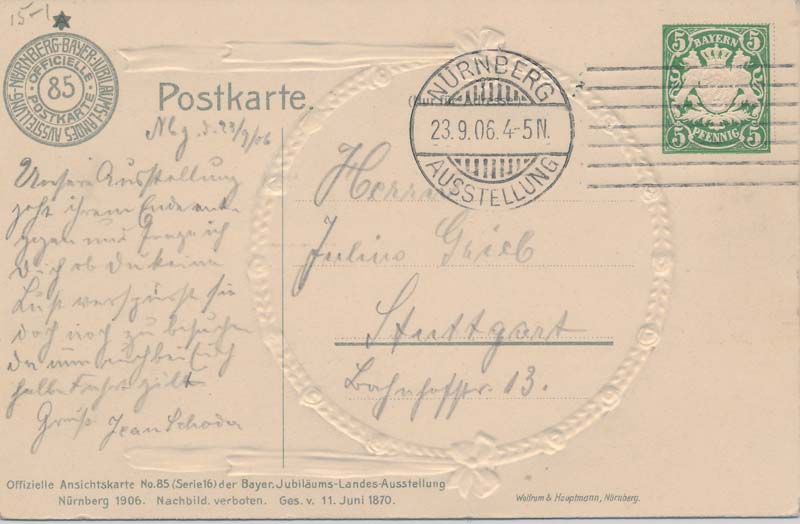 15-1
NÜRNBERG·BAYER·JUBILÄUMS-LANDES-AUSSTELLUNG
OFFICIELLE POSTKARTE
85
Postkarte.
NÜRNBERG
23.9.06.4-5N.
AUSSTELLUNG
5 BAYERN 5
5 PFENNIG 5
Nbg. d. 23/9/06
Unsere Ausstellung
geht ihrem Ende ent-
gegen und frage ich
Dich ob Du keine
Lust verspürst sie
doch noch zu besuchen
da nun auch bei Euch
halbe Fahrt gilt
Gruß Jean Schoder
Herrn
Julius Grieb
Stuttgart
Bahnhofstr. 13.
Offizielle Ansichtskarte No.85 (Serie16) der Bayer. Jubiläums-Landes-Ausstellung
Nürnberg 1906. Nachbild. verboten. Ges. v. 11. Juni 1870.
Wolfrum & Hauptmann, Nürnberg.